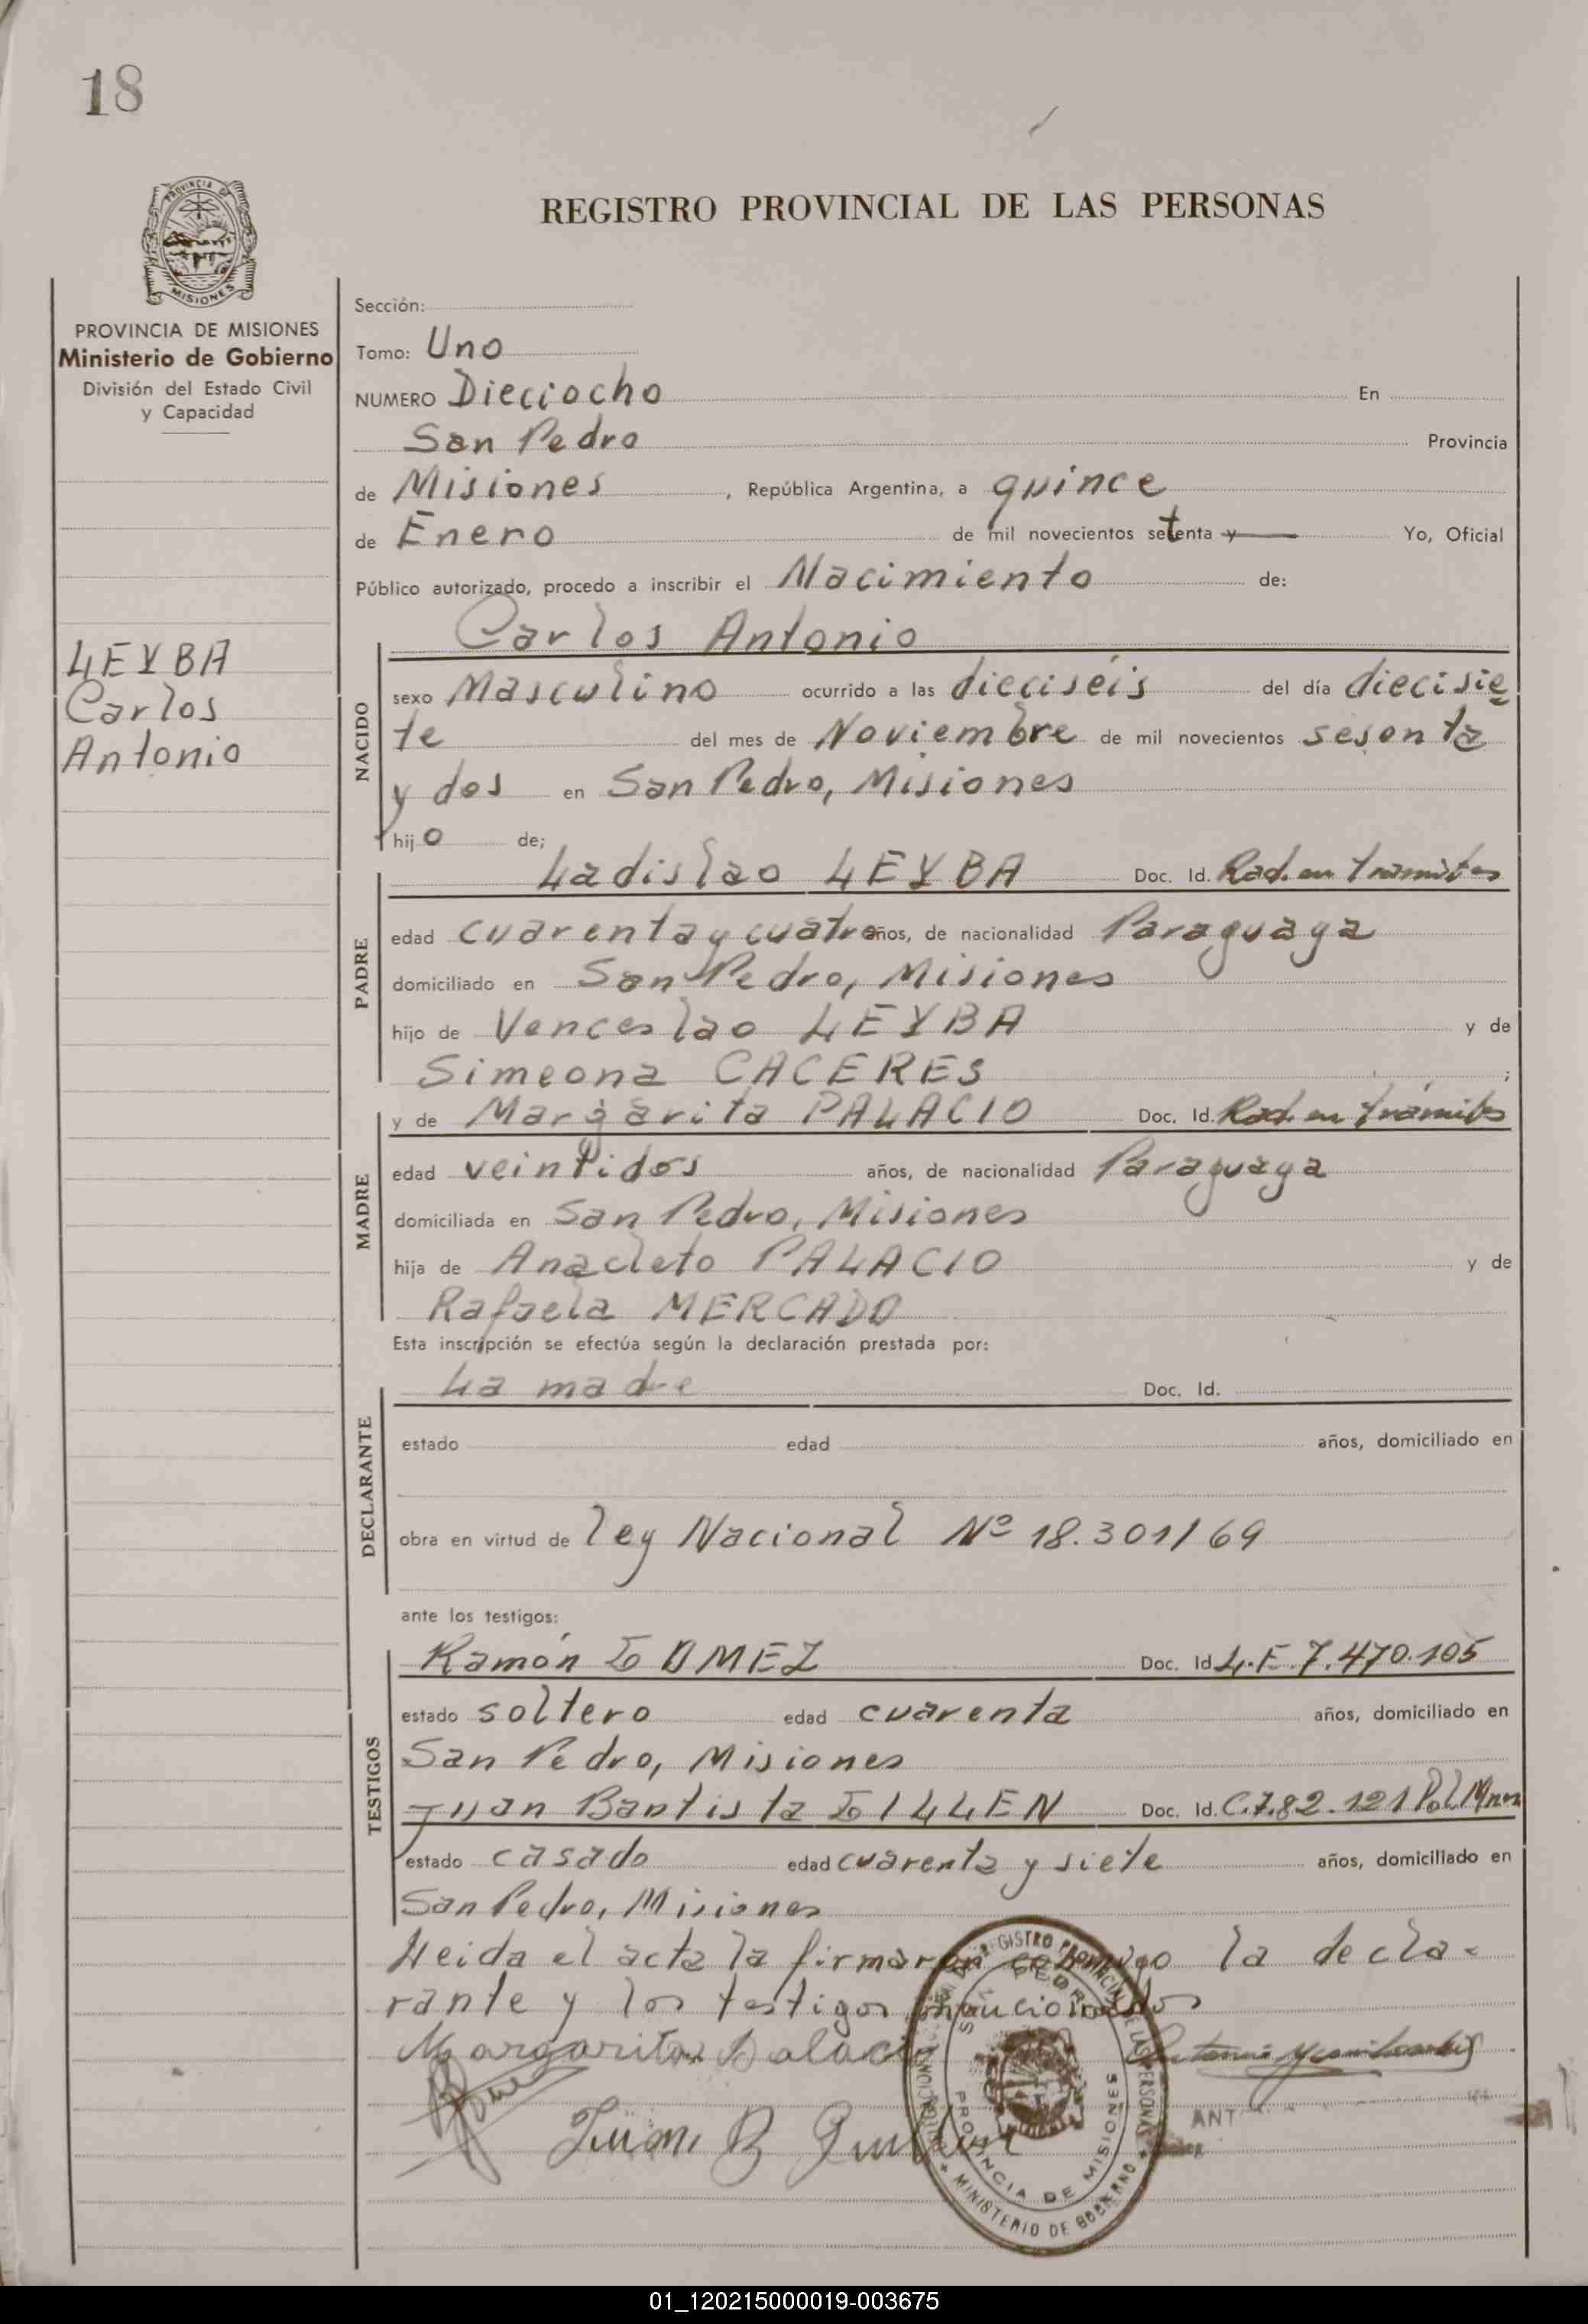 18
PROVINCIA DE
MISIONES
REGISTRO PROVINCIAL DE LAS PERSONAS
PROVINCIA DE MISIONES
Ministerio de Gobierno
División del Estado Civil
y Capacidad
LEYBA
Carlos
Antonio
Sección:
Tomo: Uno
NUMERO Dieciocho En
San Pedro Provincia
de Misiones, República Argentina, a quince
de Enero de mil novecientos setenta y Yo, Oficial
Público autorizado, procedo a inscribir el Nacimiento de:
Carlos Antonio
NACIDO
sexo Masculino ocurrido a las dieciséis del día diecisie
te del mes de Noviembre de mil novecientos sesenta
y dos en San Pedro, Misiones
hijo de;
Ladislao LEYBA Doc. Id. Rad. en tramites
PADRE
edad cuarenta y cuatro años, de nacionalidad Paraguaya
domiciliado en San Pedro, Misiones
hijo de Venceslao LEYBA y de
Simeona CACERES ;
y de Margarita PALACIO Doc. Id. Rad. en trámites
MADRE
edad veintidos años, de nacionalidad Paraguaya
domiciliada en San Pedro, Misiones
hija de Anacleto PALACIO y de
Rafaela MERCADO
Esta inscripción se efectúa según la declaración prestada por:
La madre Doc. Id.
DECLARANTE
estado edad años, domiciliado en
obra en virtud de ley Nacional Nº 18.301/69
ante los testigos:
Ramón GOMEZ Doc. Id L.E. 7.470.105
TESTIGOS
estado soltero edad cuarenta años, domiciliado en
San Pedro, Misiones
Juan Bautista GILLEN Doc. Id. C.I. 82.121 Pol. Mnes
estado casado edad cuarenta y siete años, domiciliado en
San Pedro, Misiones
Leida el acta la firmaron conmigo la decla-
rante y los testigos mencionados
Margarita Palacio
Juan B
ANT
REGISTRO PROVINCIAL DE LAS PERSONAS
SAN PEDRO
PROVINCIA DE MISIONES
MINISTERIO DE GOBIERNO
01_120215000019-003675